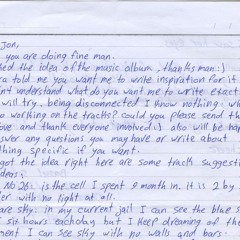 Jon,
you are doing fine man.
ed the idea of the music album, thanks man:)
ra told me you want me to write inspiration for it
nt understand what do you want me to write exact
will try. being disconnected I know nothing: wh
o working on the tracks? could you please send th
ove and thank everyone involved:) also will be hap
nswer any questions you may have or write about
thing specific if you want.
got the idea right here are some track suggesti
deas:
No 26: is the cell I spent 9 month in. it is 2 by
ter with no light at all.
are sky: in my current jail I can see the blue s
six hours eachday but I keep dreaming of the
ment I can see sky with no walls and bars.